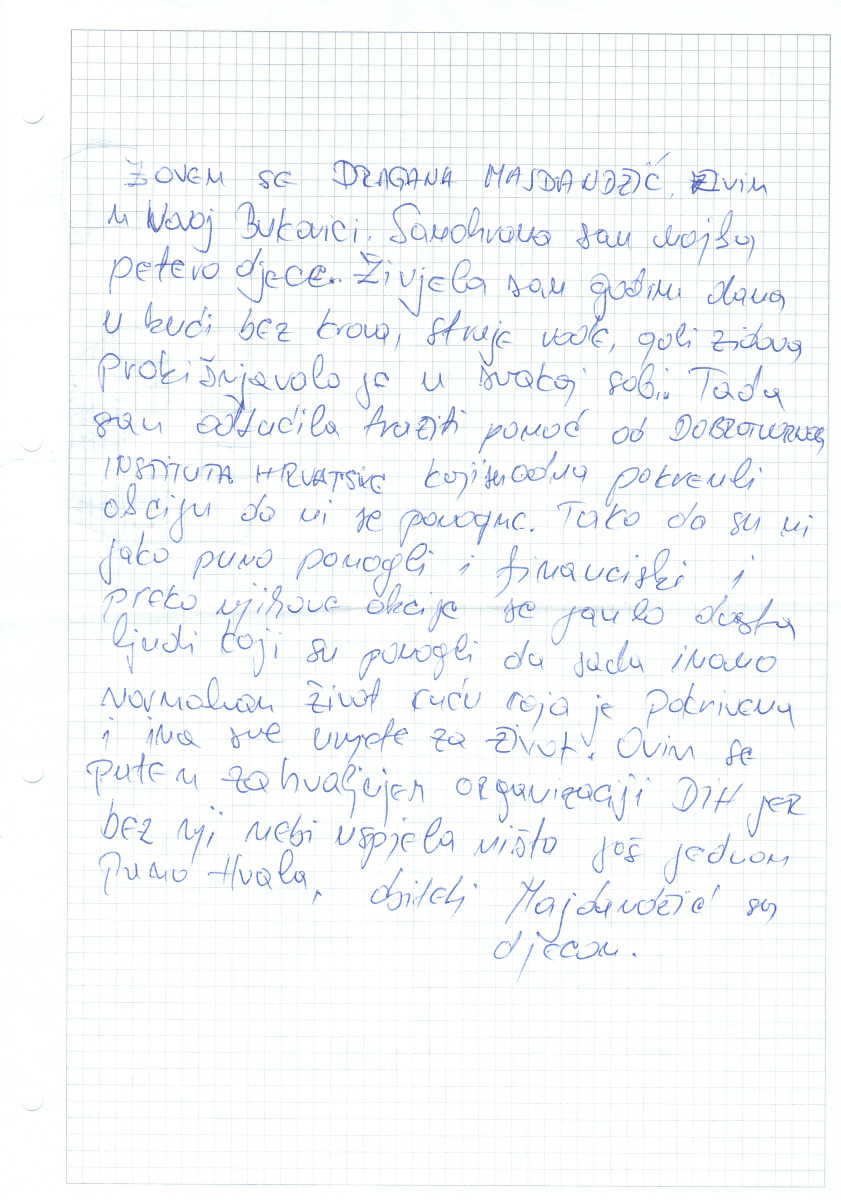 ZOVEM SE DRAGANA MAJDANDŽIĆ, Živim
u Novoj Bukovici. Samohrana sam majka
petero djece. Živjela sam godinu dana
u kući bez krova, struje vode, goli zidova
Prokišnjavalo je u svakoj sobi. Tada
sam odlučila tražiti pomoć od DOBROTVORNOG
INSTITUTA HRVATSKE koji su odma pokrenuli
akciju da mi se pomogne. Tako da su mi
jako puno pomogli i financiski i
preko njihove akcije se javilo dosta
ljudi koji su pomogli da sada imamo
normalnan život kuću koja je pokrivena
i ima sve uvjete za život. Ovim se
putem zahvaljujem organizaciji DIH jer
bez nji nebi uspjela ništa još jednom
Puno Hvala, obitelj Majdandžić sa
djecom.